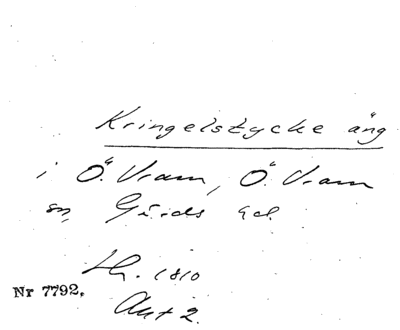 Kringelstycke äng
i Ö. Vram, Ö. Vram
sn, Gärds hd.
LH. 1810
Nr 7792.
Akt 2.